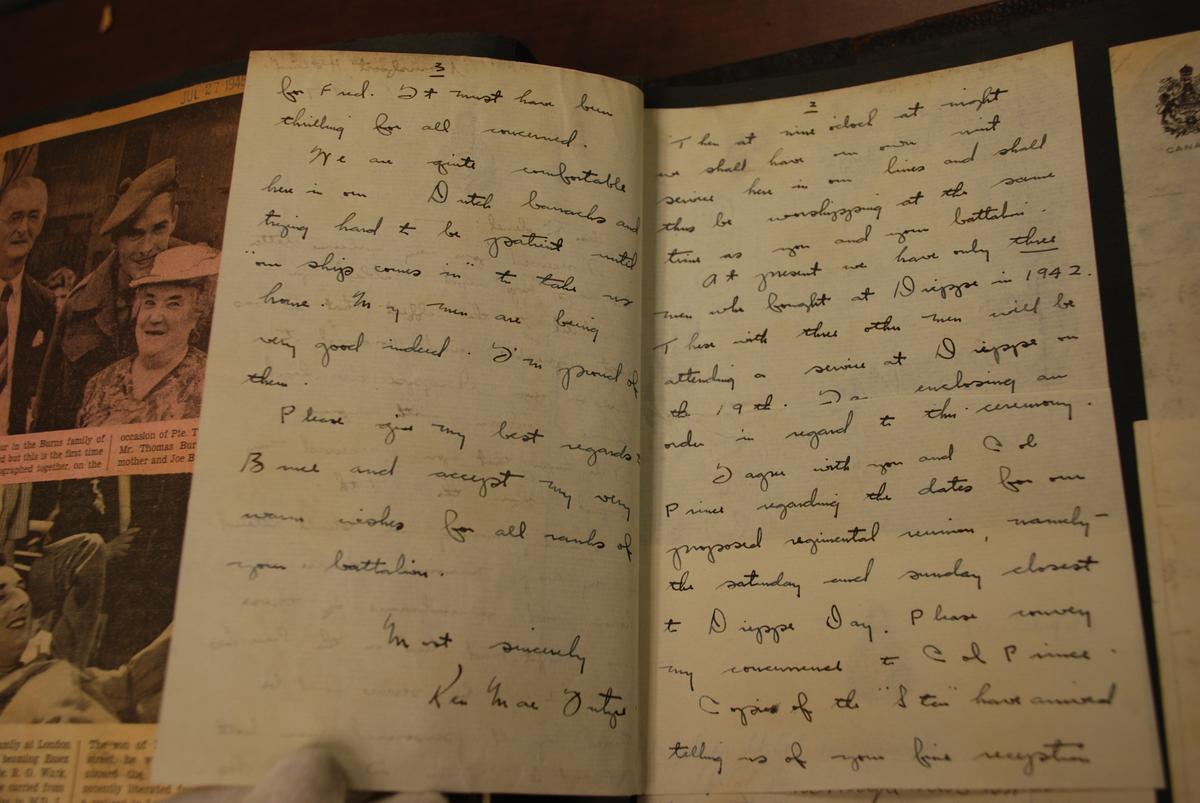 JUL 27 194
our in the Burns family of
d but this is the first time
ographed together, on the
occasion of Pte. T
Mr. Thomas Bur
mother and Joe B
amily at London
beaming Essex
le. R. G. Wark,
e carried from
The son of
street, he w
aboard the
recently liberated
3
for Fred. It must have been
thrilling for all concerned.
We are quite comfortable
here in our Dutch barracks and
trying hard to be patient until
"our ships comes in" to take us
home. My men are being
very good indeed. I'm proud of
them.
Please give my best regards
Bruce and accept my very
warm wishes for all ranks of
your battalion.
Most sincerely
Ken Mac Intyre
2
Then at nine o'clock at night
we shall have our own unit
service here in our lines and shall
thus be worshipping at the same
time as you and your battalion.
At present we have only three
men who fought at Dieppe in 1942.
These with three other men will be
attending a service at Dieppe on
the 19th. I am enclosing an
order in regard to this ceremony.
I agree with you and Col
Prince regarding the dates for our
proposed regimental reunion, namely-
the saturday and sunday closest
to Dieppe Day. Please convey
my concurrence to Col Prince.
Copies of the "Star" have arrived
telling us of your fine reception
CANA